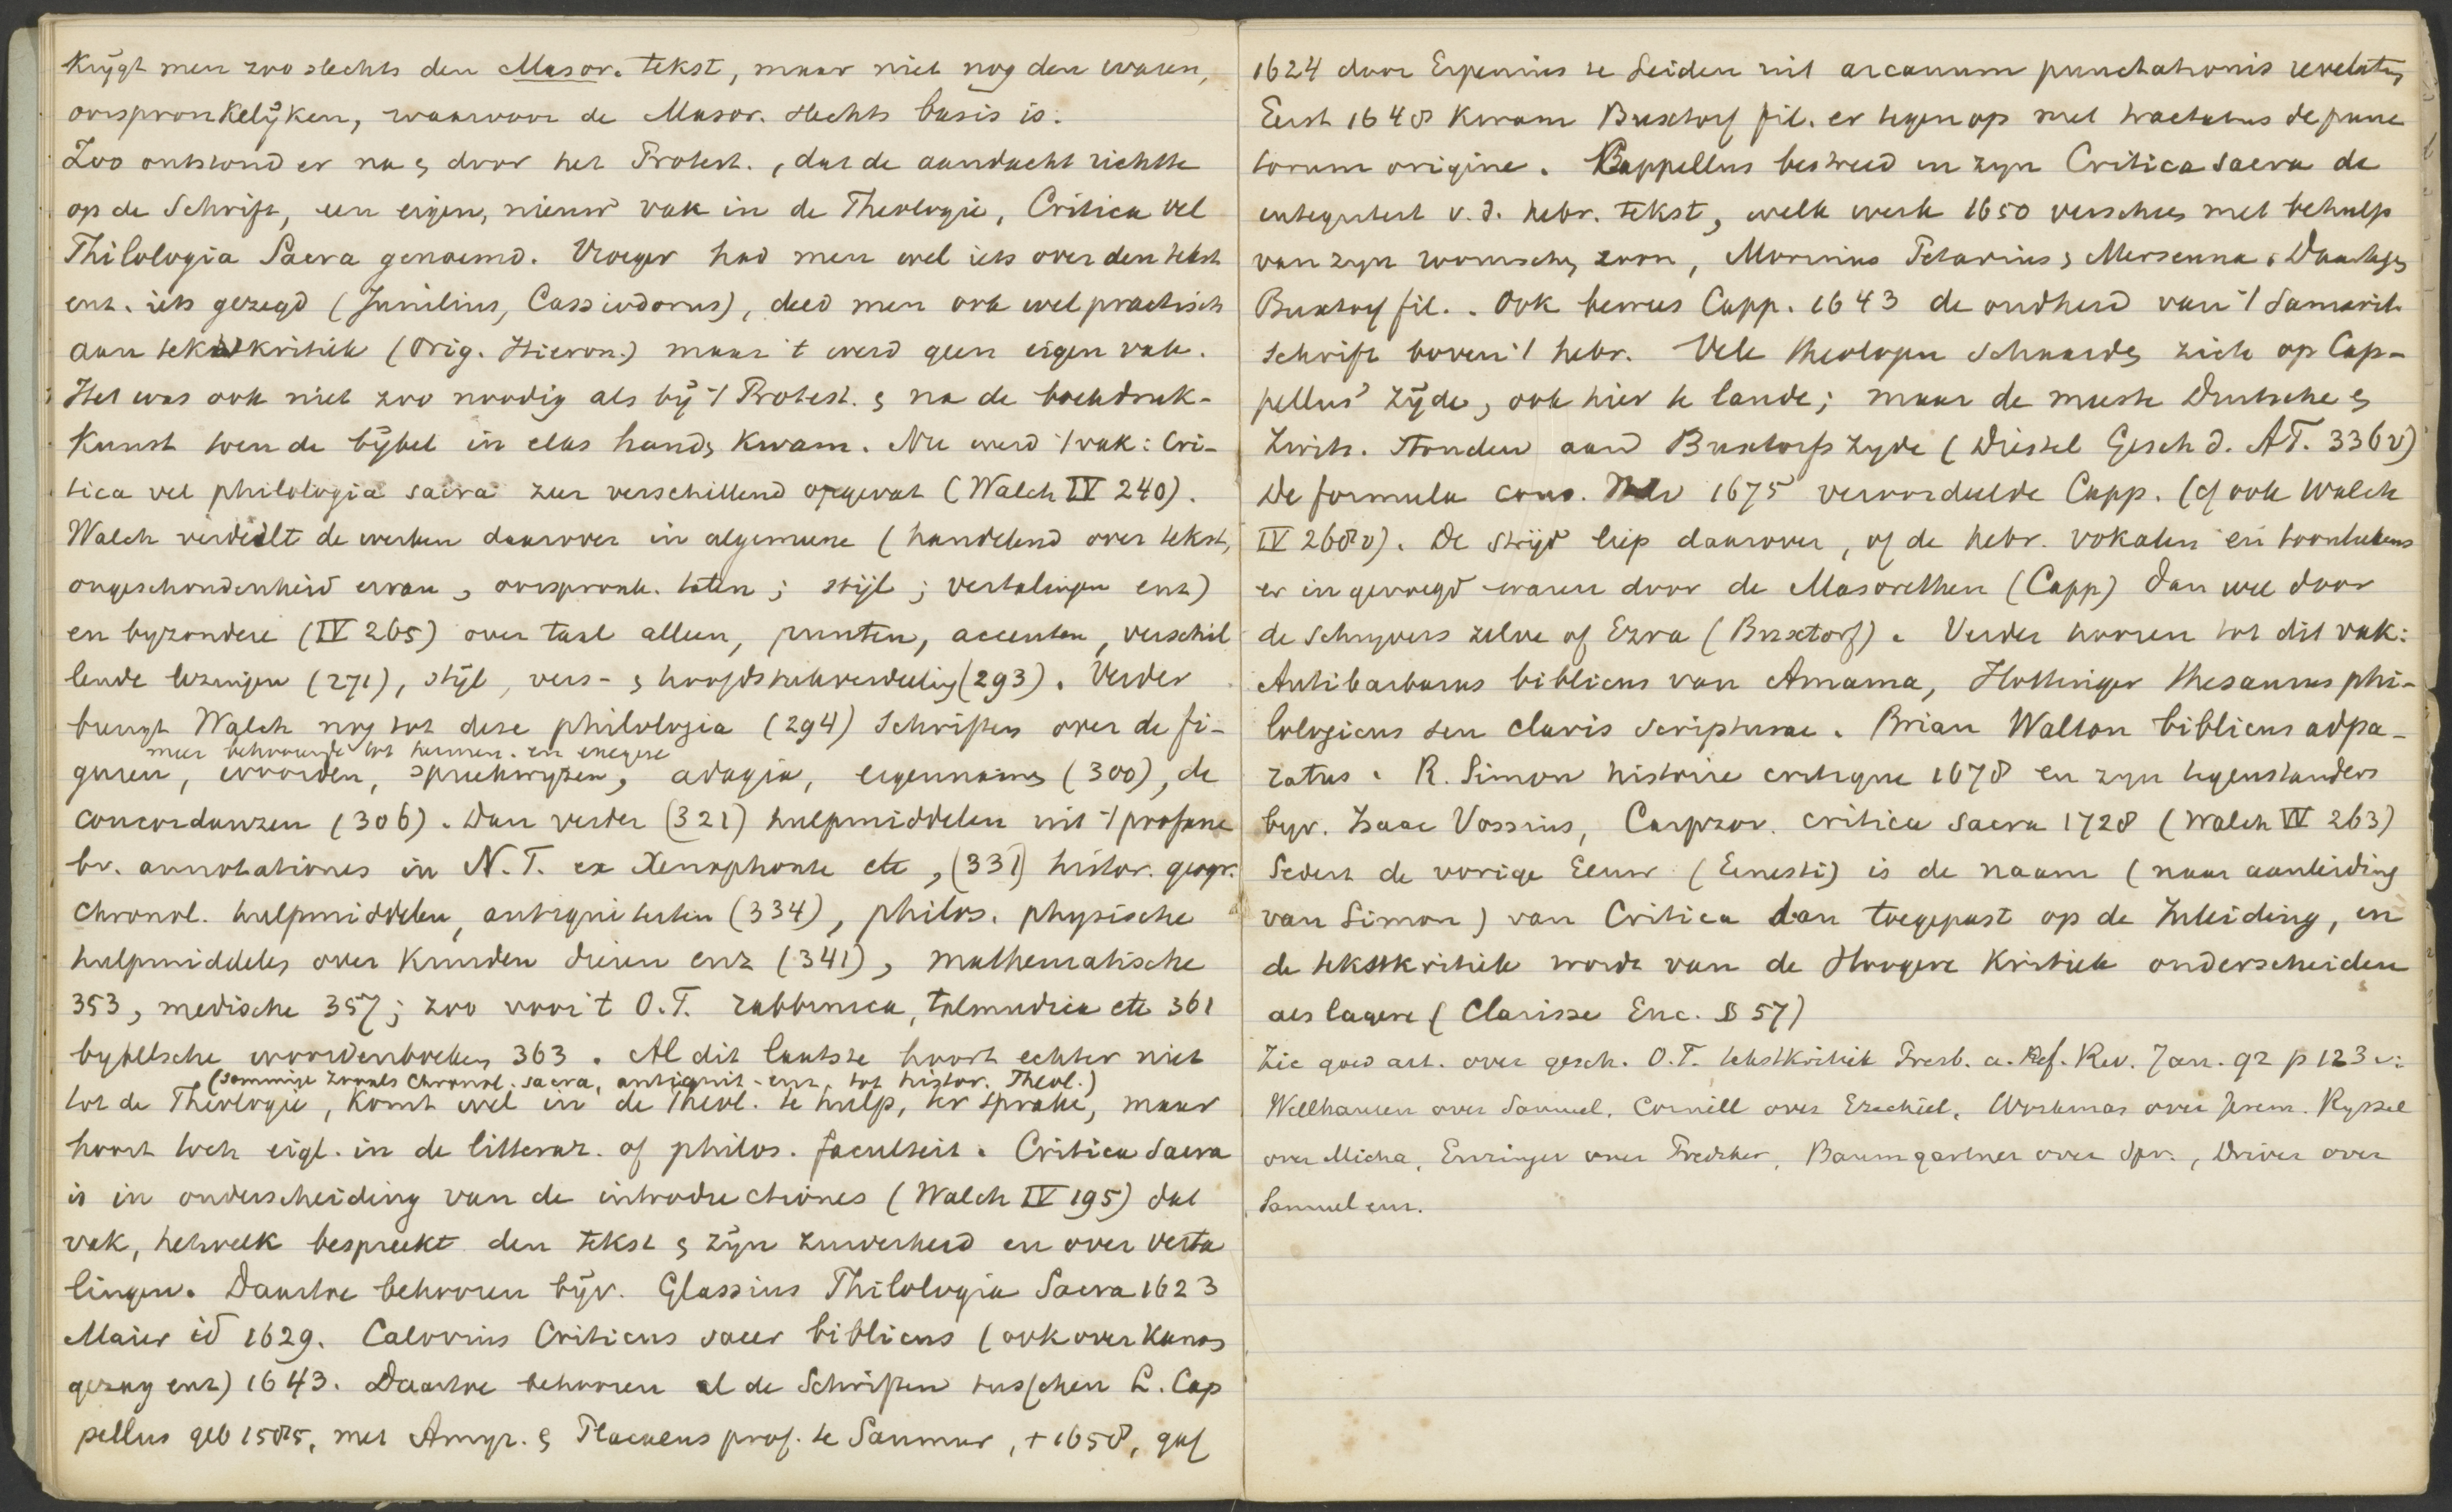 krijgt men zoo slechts den Masor. tekst, maar niet nog den waren,
oorspronkelijken, waarvoor de Masor. slechts basis is.
Zoo ontstond er na & door het Protest., dat de aandacht richtte
op de Schrift, een eigen, nieuw vak in de Theologie, Critica vel
Philologia Sacra genoemd. Vroeger had men wel iets over den tekst
enz. iets gezegd (Junilius, Cassiodorus), deed men ook wel practisch
aan tekstkritiek (Orig. Hieron.) maar 't werd geen eigen vak.
Het was ook niet zoo noodig als bij 't Protest. & na de boekdruk-
kunst toen de bijbel in elks hand kwam. Nu werd 't vak: Cri-
tica vel philologia sacra zeer verschillend opgevat (Walch IV 240).
Walch verdeelt de werken daarover in algemeene (handelend over tekst,
ongeschondenheid ervan, oorspronk. talen; stijl; vertalingen enz)
en byzondere (IV 265) over taal alleen, punten, accenten, verschil
lende lezingen (271), stijl, vers- & hoofdstukverdeeling (293). Verder
brengt Walch nog tot deze philologia (294) Schriften over de fi-
meer behoorende tot hermen. en exegese
guren, woorden, spreekwyzen, adagia, eigennamen (300), de
concordanzen (306). Dan verder (321) hulpmiddelen uit 't profane
bv. annotationes in N.T. ex Xenophonte etc, (331) histor. geogr.
chronol. hulpmiddelen, antiquiteiten (334), philos. physische
hulpmiddelen over kruiden dieren enz (341), mathematische
353, medische 357; zoo voor 't O.T. rabbinica, talmudica etc 361
bybelsche woordenboeken 363. Al dit laatste hoort echter niet
(sommige zooals chronol. sacra, antiquit. enz. tot histor. Theol.)
tot de Theologie, komt wel in de Theol. te hulp, ter sprake, maar
hoort toch eigl. in de litterar. of philos. faculteit. Critica Sacra
is in onderscheiding van de introductiones (Walch IV 195) dat
vak, hetwelk bespreekt den tekst & zijn zuiverheid en over verta
lingen. Daartoe behooren bijv. Glassius Philologia Sacra 1623
Maier id 1629. Calovius Criticus sacer biblicus (ook over kanon
gezag enz) 1643. Daartoe behooren al de Schriften tusschen L. Cap
pellus geb 1585, met Amyr. & Placaeus prof. te Saumur, † 1658, gaf
1624 door Erpenius te Leiden uit arcanum punctationis revelatum
Eerst 1648 kwam Buxtorf fil. er tegen op met tractatus de punc
torum origine. Cappellus bestreed in zyn Critica sacra de
integriteit v. d. hebr. tekst, welk werk 1650 verscheen met behulp
van zyn roomschen zoon, Morinus Petavius & Mersenna. Daartegen
Buxtorf fil.. Ook bewees Capp. 1643 de oudheid van 't Samarit.
schrift boven 't hebr. Vele theologen schaarden zich op Cap-
pellus' zijde, ook hier te lande; maar de meeste Duitsche &
Zwits. stonden aan Buxtorfs zyde (Diestel Gesch d. AT. 336 v)
De formula cons. 1675 veroordeelde Capp. (cf ook Walch
IV 268 v). De strijd liep daarover, of de hebr. vokalen en toontekens
er in gevoegd waren door de Masorethen (Capp) dan wel door
de schryvers zelve of Ezra (Buxtorf). Verder hooren tot dit vak:
Antibarbarus biblicus van Amama, Hottinger thesaurus phi-
lologicus seu clavis scripturae. Brian Walton biblicus adpa-
ratus. R. Simon histoire critique 1678 en zyn tegenstanders
byv. Isaac Vossius, Carpzov. critica sacra 1728 (Walch IV 263)
Sedert de vorige Eeuw (Ernesti) is de naam (naar aanleiding
van Simon) van Critica dan toegepast op de Inleiding, en
de tekstkritiek wordt van de Hoogere Kritiek onderscheiden
als lagere (Clarisse Enc. § 57)
Zie goed art. over gesch. O.T. tekstkritiek Presb. a. Ref. Rev. Jan. 92 p 123 v:
Wellhausen over Samuel, Cornill over Ezechiel, Workman over Jerem. Ryssel
over Micha, Euringer over Prediker, Baumgartner over Spr., Driver over
Samuel enz.